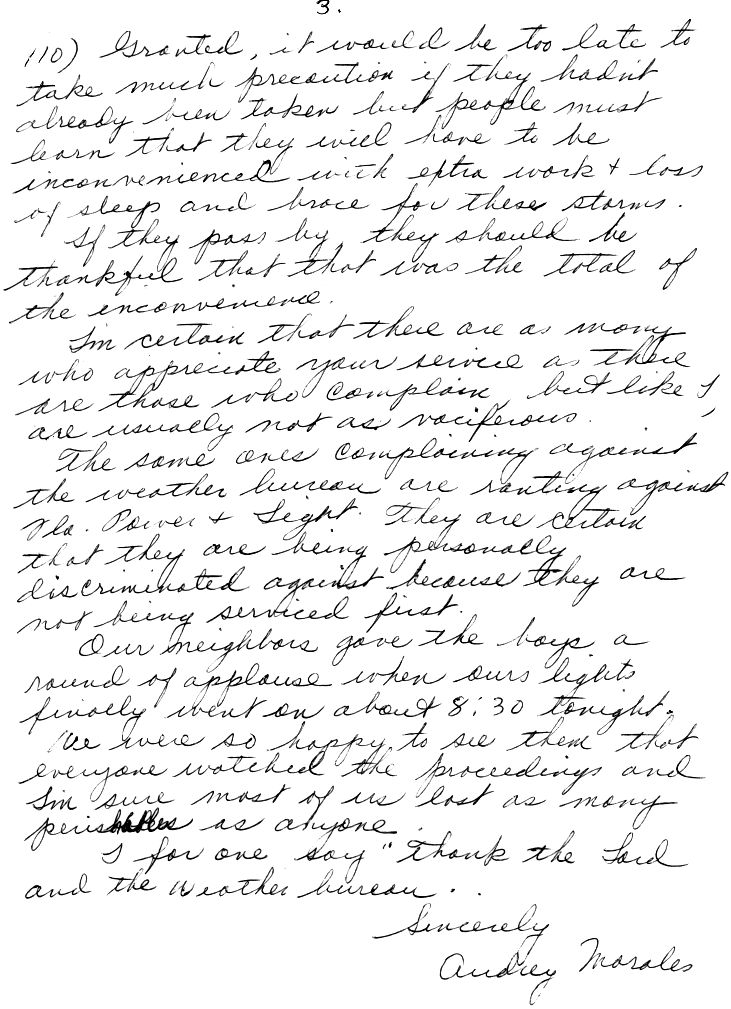 3.
110) Granted, it would be too late to
take much precaution if they hadn't
already been taken but people must
learn that they will have to be
inconvenienced with extra work + loss
of sleep and brace for these storms.
If they pass by, they should be
thankful that that was the total of
the inconvenience.
I'm certain that there are as many
who appreciate your service as there
are those who complain, but like I,
are usually not as vociferous.
The same ones complaining against
the weather bureau are ranting against
Fla. Power + Light. They are certain
that they are being personally
discriminated against because they are
not being serviced first.
Our neighbors gave the boys a
round of applause when ours lights
finally went on about 8:30 tonight.
We were so happy to see them that
everyone watched the proceedings and
I'm sure most of us lost as many
perishables as anyone.
I for one say "Thank the Lord
and the Weather bureau..
Sincerely
Audrey Morales